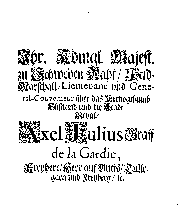 Ihr. Königl. Majest.
zu Schweden Raht / Feld-
Marschall-Lieutenant und Gene-
ral-Gouverneur über das Hertzogthumb
Ehstland und die Stadt
Reval
Axel Julius Graff
de la Gardie,
Freyherr / Herr auff
und / ꝛc.